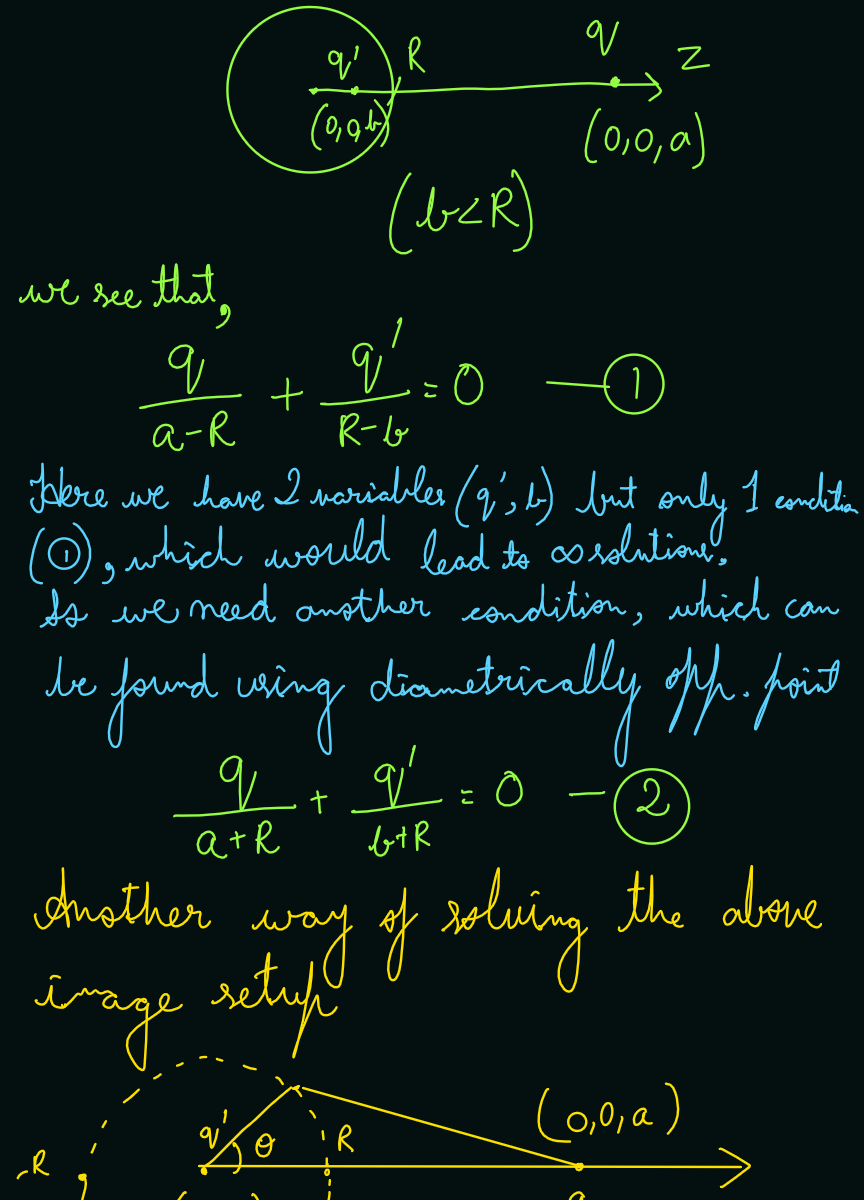 q' R q Z
(0,0,b) (0,0,a)
(b<R)
we see that,
q/(a-R) + q'/(R-b) = 0 — ①
Here we have 2 variables (q', b) but only 1 condition
(①), which would lead to ∞ solutions.
So we need another condition, which can
be found using diametrically opp. point
q/(a+R) + q'/(b+R) = 0 — ②
Another way of solving the above
image setup
(0,0,a)
-R q' θ R